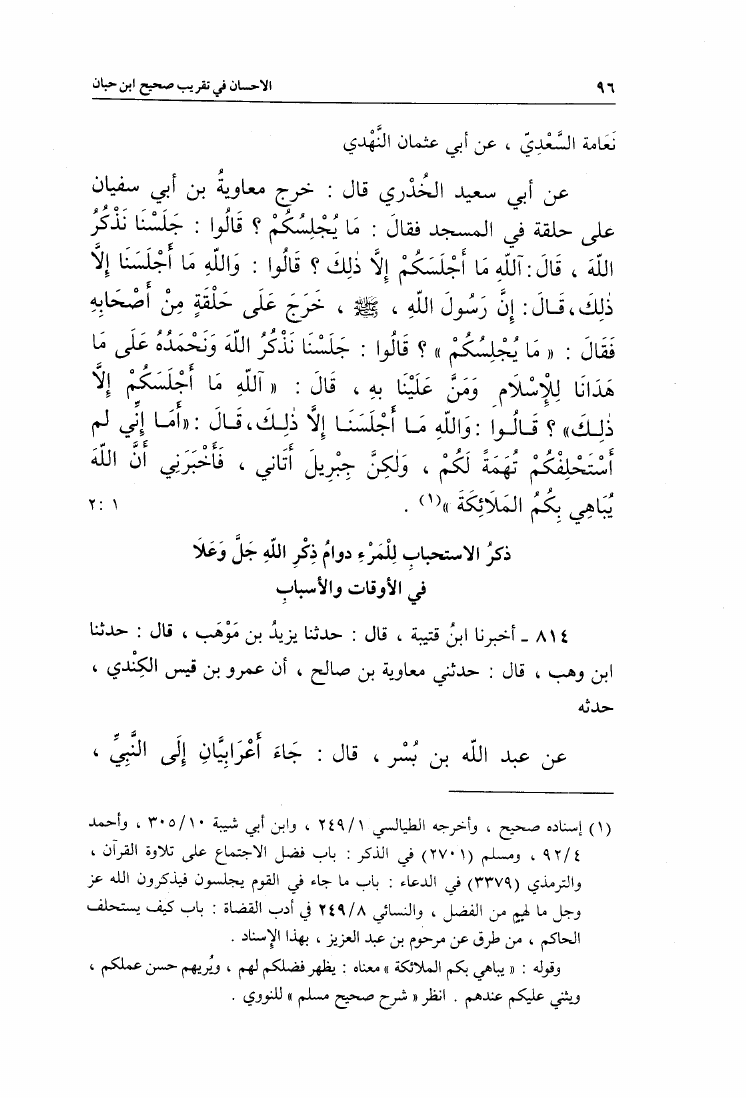 ٩٦ الاحسان في تقريب صحيح ابن حبان
نَعَامة السَّعْدِيّ ، عن أبي عثمان النَّهْدي
عن أبي سعيد الخُدْري قال : خرج معاويةُ بن أبي سفيان
على حلقة في المسجد فقالَ : مَا يُجْلِسُكُمْ ؟ قَالُوا : جَلَسْنَا نَذْكُرُ
اللهَ ، قَالَ : آللهِ مَا أَجْلَسَكُمْ إِلَّا ذٰلِكَ ؟ قَالُوا : وَاللهِ مَا أَجْلَسَنَا إِلَّا
ذٰلِكَ، قَـالَ : إِنَّ رَسُولَ اللهِ ، ﷺ ، خَرَجَ عَلَى حَلْقَةٍ مِنْ أَصْحَابِهِ
فَقَالَ : « مَا يُجْلِسُكُمْ » ؟ قَالُوا : جَلَسْنَا نَذْكُرُ اللهَ وَنَحْمَدُهُ عَلَى مَا
هَدَانَا لِلإِسْلَامِ وَمَنَّ عَلَيْنَا بِهِ ، قَالَ : « آللهِ مَا أَجْلَسَكُمْ إِلَّا
ذٰلِـكَ» ؟ قَـالُـوا : وَاللهِ مَـا أَجْلَسَنَـا إِلَّا ذٰلِـكَ، قَـالَ : «أَمَـا إِنِّي لم
أَسْتَحْلِفْكُمْ تُهَمَةً لَكُمْ ، وَلٰكِنَّ جِبْرِيلَ أَتَاني ، فَأَخْبَرَنِي أَنَّ اللهَ
يُبَاهِي بِكُمُ المَلَائِكَةَ »(١) . ١ : ٢
ذكرُ الاستحبابِ لِلْمَرْءِ دوامُ ذِكْرِ اللهِ جَلَّ وَعَلَا
في الأوقات والأسبابِ
٨١٤ ـ أخبرنا ابنُ قتيبة ، قال : حدثنا يزيدُ بن مَوْهَب ، قال : حدثنا
ابن وهب ، قال : حدثني معاوية بن صالح ، أن عمرو بن قيس الكِنْدي ،
حدثه
عن عبد الله بن بُسْر ، قال : جَاءَ أَعْرَابِيَّانِ إِلَى النَّبِيِّ ،
(١) إسناده صحيح ، وأخرجه الطيالسي ٢٤٩/١ ، وابن أبي شيبة ٣٠٥/١٠ ، وأحمد
٩٢/٤ ، ومسلم (٢٧٠١) في الذكر : باب فضل الاجتماع على تلاوة القرآن ،
والترمذي (٣٣٧٩) في الدعاء : باب ما جاء في القوم يجلسون فيذكرون الله عز
وجل ما لهم من الفضل ، والنسائي ٢٤٩/٨ في أدب القضاة : باب كيف يستحلف
الحاكم ، من طرق عن مرحوم بن عبد العزيز ، بهذا الإسناد .
وقوله : « يباهي بكم الملائكة » معناه : يظهر فضلكم لهم ، ويُريهم حسن عملكم ،
ويثني عليكم عندهم . انظر « شرح صحيح مسلم » للنووي .